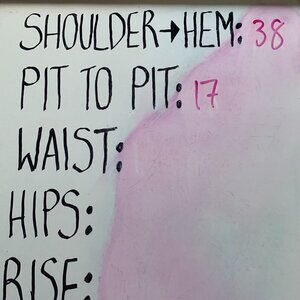 SHOULDER→HEM: 38
PIT TO PIT: 17
WAIST:
HIPS:
RISE: